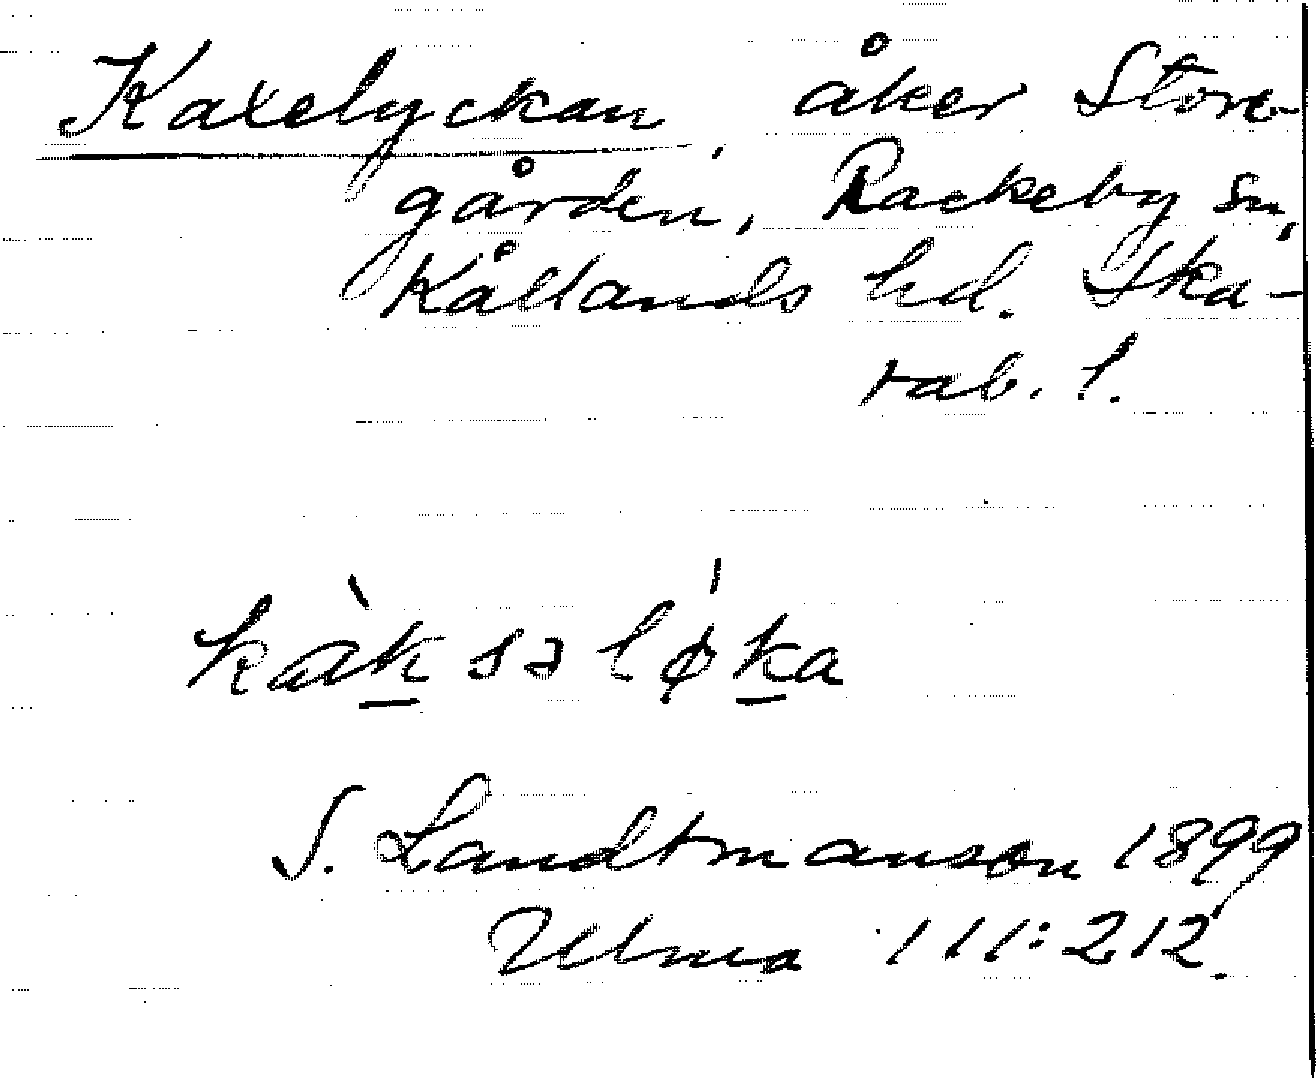 Kaxelyckan, åker Store-
gården, Rackeby sn,
Kållands hd. Ska-
rab. l.
kàksəlø̍ka
S. Landtmanson 1899
Ulma 111:212.